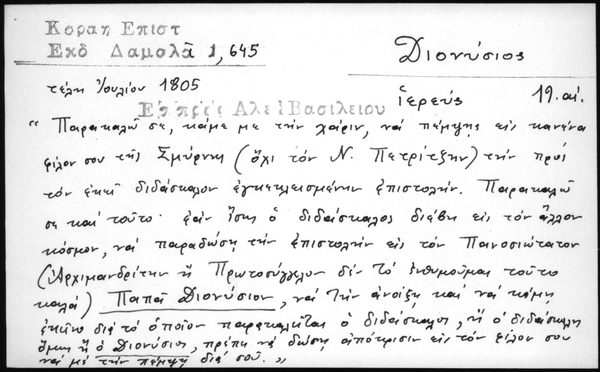 Κοραη Επιστ
Εκδ Δαμαλᾶ 1,645
Διονύσιος
τέλη Ἰουλίου 1805
ἱερεύς 19. αἰ.
Επ πρὸς Αλεξ Βασιλειου
"Παρακαλῶ σε, κάμε με τὴν χάριν, νὰ πέμψῃς εἰς κανένα
φίλον σου τῆς Σμύρνης (ὄχι τὸν Ν. Πετρίτζην) τὴν πρὸς
τὸν ἐκεῖ διδάσκαλον ἐγκεκλεισμένην ἐπιστολήν. Παρακαλῶ
σε καὶ τοῦτο· ἐὰν ἴσως ὁ διδάσκαλος διέβη εἰς τὸν ἄλλον
κόσμον, νὰ παραδώσῃ τὴν ἐπιστολὴν εἰς τὸν Πανοσιώτατον
(Ἀρχιμανδρίτην ἢ Πρωτοσύγγελον δὲν τὸ ἐνθυμοῦμαι τοῦτο
καλά) Παπᾶ Διονύσιον, νὰ τὴν ἀνοίξῃ καὶ νὰ κάμῃ
ἐκεῖνο διὰ τὸ ὁποῖον παρακαλεῖται ὁ διδάσκαλος, ἢ ὁ διδάσκαλος
ὅμως ἢ ὁ Διονύσιος, πρέπει νὰ δώσῃ ἀπόκρισιν εἰς τὸν φίλον σου
νὰ μὲ τὴν πέμψῃ διὰ σοῦ."